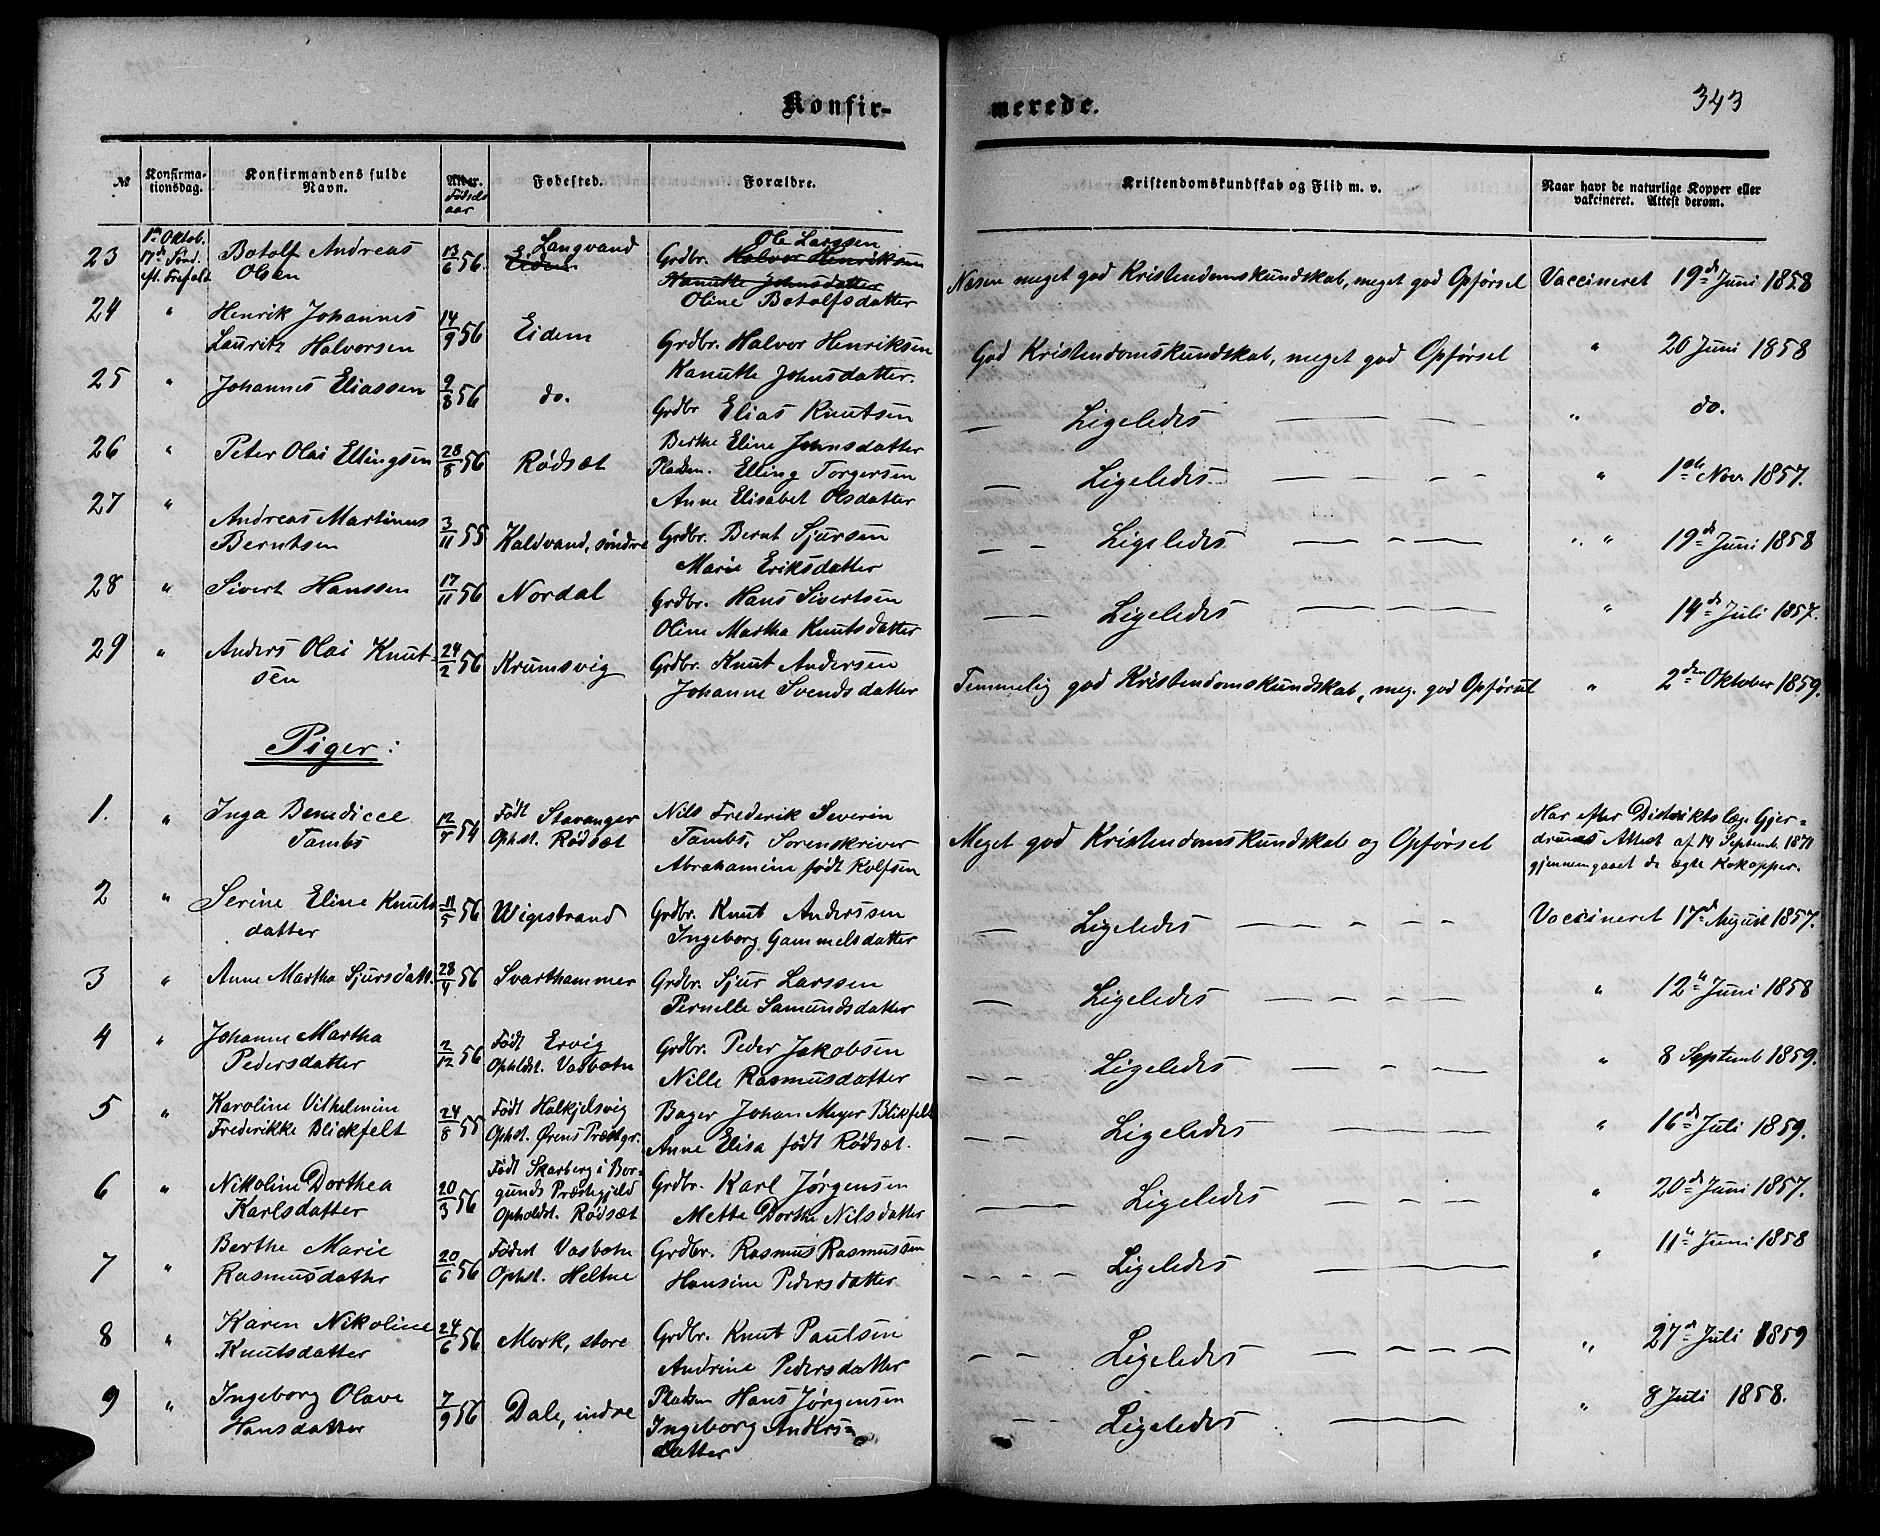 Konfir- merede. 343
№ Konfirma-tionsdag. Konfirmandens fulde Navn. Alder. Fødsels aar Fødested. Forældre. Kristendomskundskab og Flid m. v. Naar havt de naturlige Kopper eller vakcineret. Attest derom.
23 1ste Oktob. 17de Sønd. ef. Trefold. Botolf Andreas Olsen 13/6 56 Eidem Langvand Grdbr. Halvor Henriksen Ole Larssen
Kanutte Johnsdatter Oline Botolfsdatter Næsten meget god Kristendomskundskab, meget god Opførsel Vaccineret 19de Juni 1858
24 " Henrik Johannes Lauritz Halvorsen 14/9 56 Eidem Grdbr. Halvor Henriksen
Kanutte Johnsdatter. God Kristendomskundskab, meget god Opførsel " 20 Juni 1858
25 " Johannes Eliassen 9/8 56 do. Grdbr Elias Knutsen
Berthe Eline Johnsdatter — Ligeledes — " do.
26 " Peter Olai Ellingsen 28/8 56 Rødsæt Pladsm. Elling Torgersen
Anne Elisabet Olsdatter — Ligeledes — " 1ste Nov. 1857.
27 " Andreas Martinus Berntsen 3/11 55 Kaldvand, søndre Grdbr. Bernt Sjursen
Marie Eriksdatter — Ligeledes — " 19de Juni 1858
28 " Sivert Hanssen 17/11 56 Nordal Grdbr. Hans Sivertsen
Oline Martha Knutsdatter — Ligeledes — " 14de Juli 1857.
29 " Anders Olai Knut-sen 24/2 56 Krumsvig Grdbr. Knut Andersen
Johanne Svendsdatter Temmelig god Kristendomskundskab, meg. god Opførsel " 2den Oktober 1859.
Piger:
1. " Inga Benedicte Tambs 12/7 54 Født Stavanger Opht. Rødsæt Nils Frederik Severin
Tambs, Sorenskriver
Abrahamine født Rolfsen Meget god Kristendomskundskab og Opførsel Har efter Distriktslæge Gjer-
drums Attest af 14 Septemb. 1871
gjennemgaaet de ægte Kokopper.
2 " Serine Eline Knuts datter 11/5 56 Wigestrand Grdbr. Knut Anderssen
Ingeborg Gammelsdatter — Ligeledes — Vaccineret 17de August 1857.
3 " Anne Martha Sjursdatt. 28/4 56 Svarthammer Grdbr. Sjur Larssen
Pernelle Samundsdatter — Ligeledes — " 12te Juni 1858
4 " Johanne Martha Pedersdatter 2/12 56 Født Ervig Opholdst. Vasbotn Grdbr. Peder Jakobsen
Nille Rasmusdatter — Ligeledes — " 8 Septemb 1859.
5 " Karoline Vilhelmine Frederikke Blickfelt 24/8 55 Født Halkjelsvig Opht. Ørens Præstgr. Bager Johan Meyer Blikfelt
Anne Elisa født Rødsæt. — Ligeledes — " 16de Juli 1859.
6 " Nikoline Dorthea Karlsdatter 20/3 56 Født Skarberg i Bor-gunds Præstegjeld Opholdst. Rødsæt Grdbr. Karl Jørgensen
Mette Dorthe Nilsdatter — Ligeledes — " 20de Juni 1857.
7 " Berthe Marie Rasmusdatter 20/6 56 Fødst Vasbotn Ophst. Heltne Grdbr. Rasmus Rasmussen
Hansine Pedersdatter — Ligeledes — " 11te Juni 1858
8 " Karen Nikoline Knutsdatter 24/6 56 Mork, store Grdbr. Knut Paulsen
Andrine Pedersdatter — Ligeledes — " 27de Juli 1859
9 " Ingeborg Olave Hansdatter 7/9 56 Dale, indre Pladsm Hans Jørgensen
Ingeborg Anders-
datter — Ligeledes — " 8 Juli 1858.